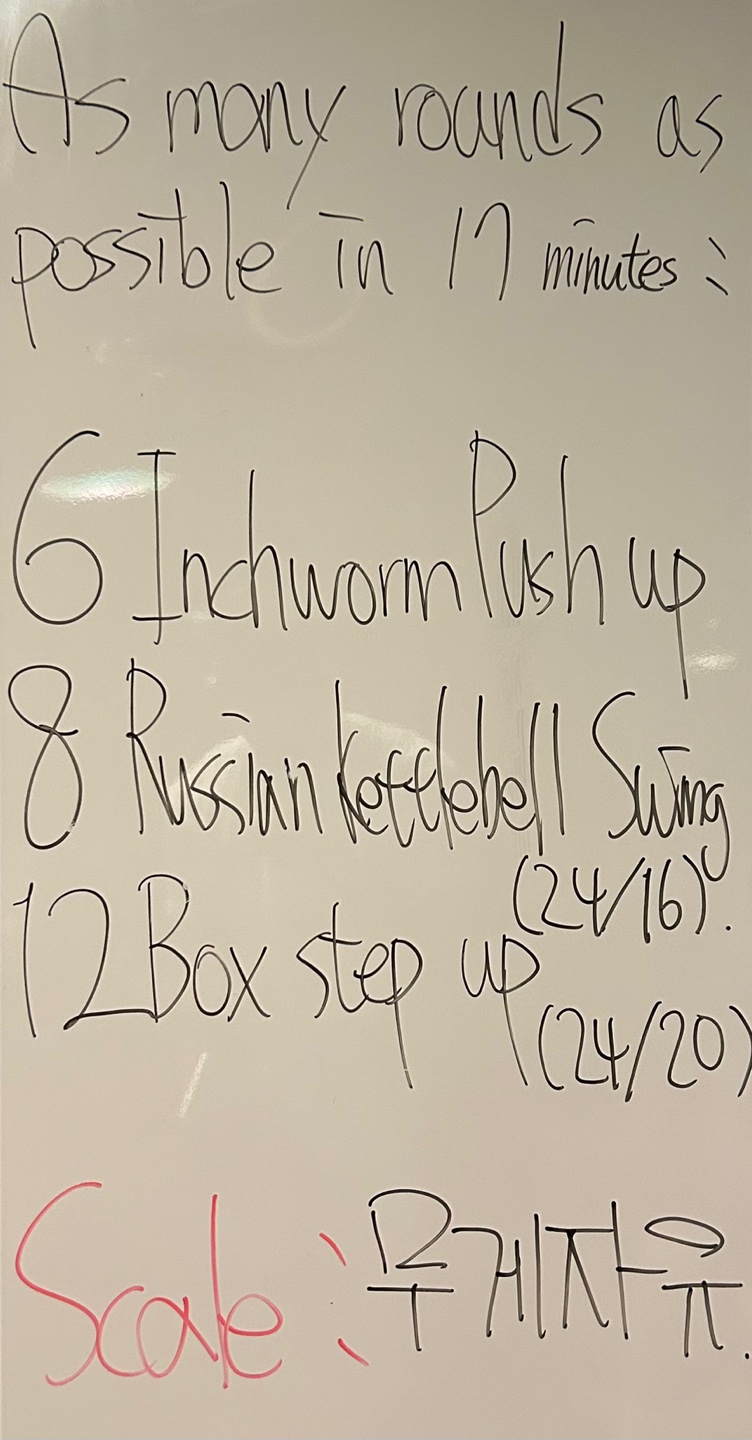 As many rounds as
possible in 17 minutes :
6 Inchworm Push up
8 Russian Kettlebell Swing
(24/16).
12 Box step up
(24/20)
Scale : 무게자유.